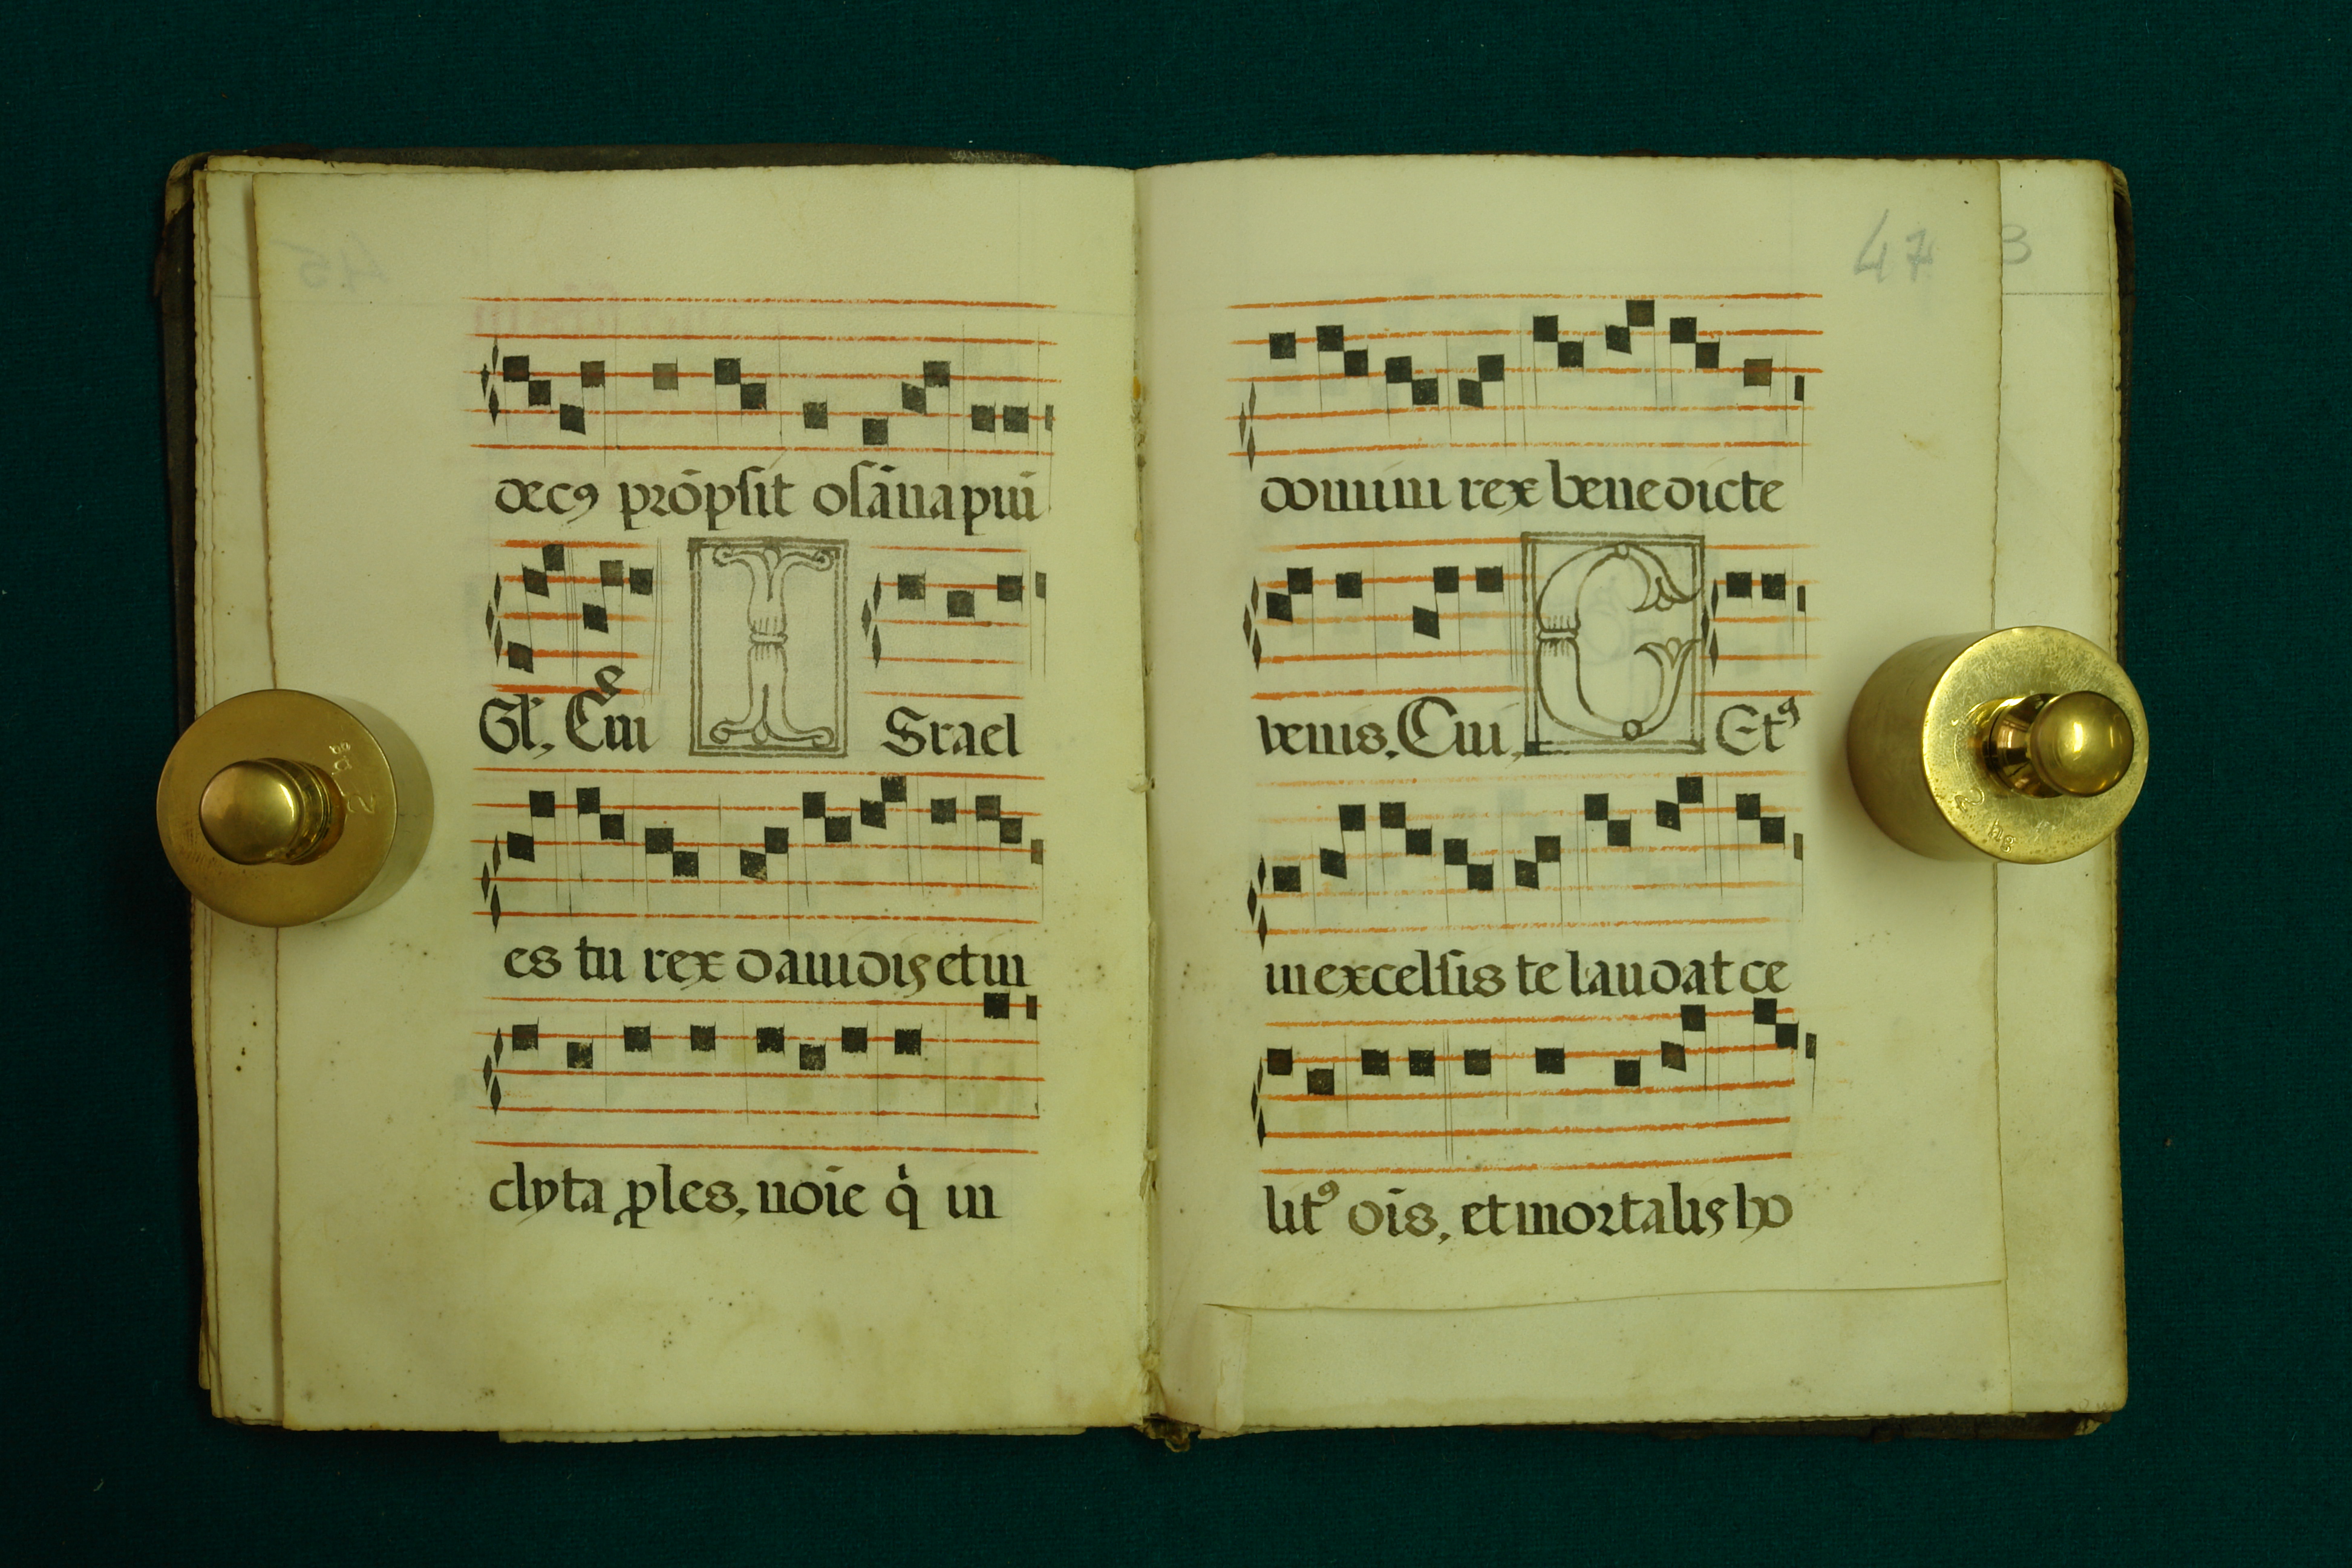 45
decꝯ prōpsit osāna pui
Gl. Cui e
I Srael
es tu rex dauidis et in
clyta ꝓles, noīe q̇ in
47
3
domini rex benedicte
venis. Cui. C Etꝰ
in excelsis te laudat ce
litꝰ oīs, et mortalis ho